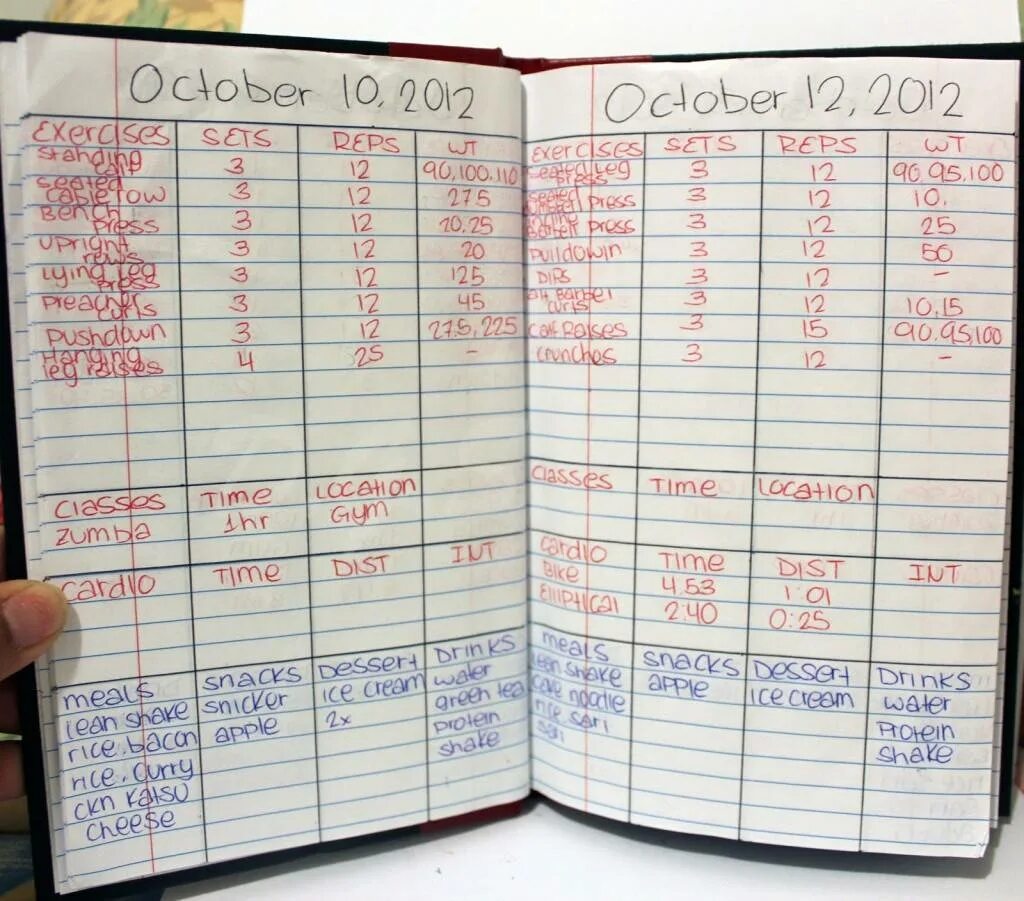 October 10, 2012
Exercises SETS REPS WT
standing calf 3 12 90,100,110
seated cable row 3 12 27.5
Bench press 3 12 20.25
upright rows 3 12 20
Lying Leg press 3 12 125
Preacher curls 3 12 45
Pushdown 3 12 27.5, 22.5
Hanging leg raises 4 25 -
Classes TIME LOCATION
ZUMBA 1hr GYM
Cardio TIME DIST INT
meals snacks Dessert Drinks
lean shake snicker ice cream water
rice. bacon apple 2x green tea
rice. curry protein
ckn katsu shake
cheese
October 12, 2012
Exercises SETS REPS WT
seated Leg press 3 12 90.95,100
seated press 3 12 10.
press 3 12 25
Pulldown 3 12 50
DIPS 3 12 -
curls 3 12 10.15
calf Raises 3 15 90.95,100
crunches 3 12 -
classes TIME LOCATION
cardio TIME DIST INT
Bike 4.53 1:01
Elliptical 2:40 0:25
meals snacks Dessert Drinks
lean shake apple ice cream water
noodle Protein
rice sari shake